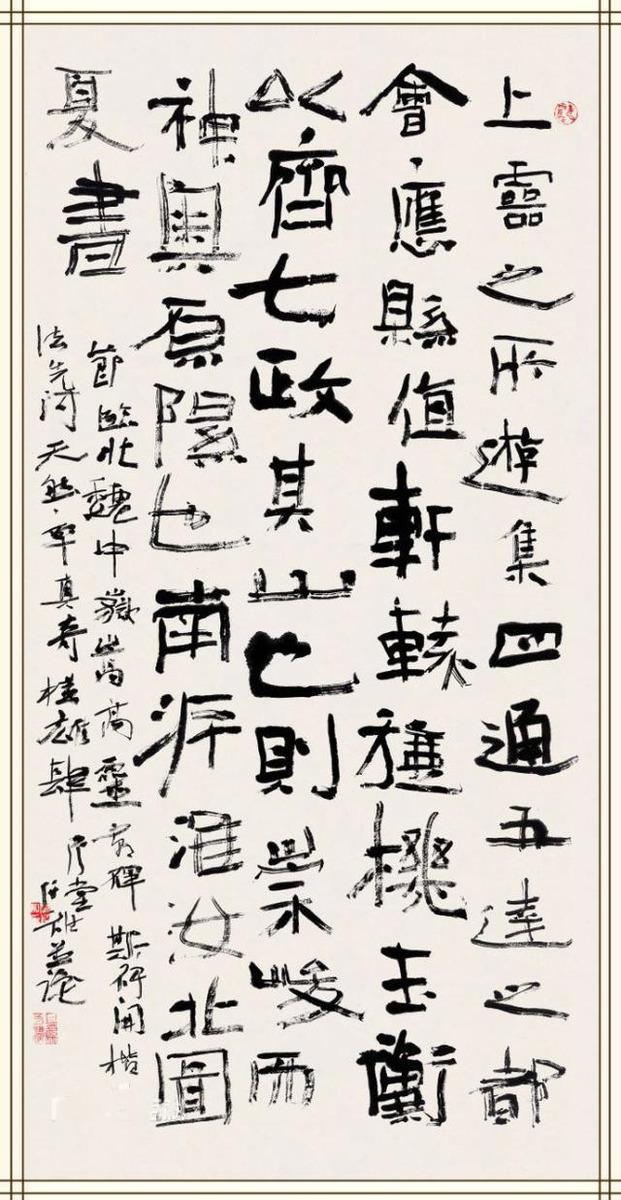 上靈之所遊集四通五達之都
會應縣值軒轅旋機玉衡
以齊七政其山也則崇峻而
神輿原隰也南派淮汝北圖
夏書
節臨北魏中嶽嵩高靈廟碑斯碑開楷
法先河天然率真奇樸雄肆